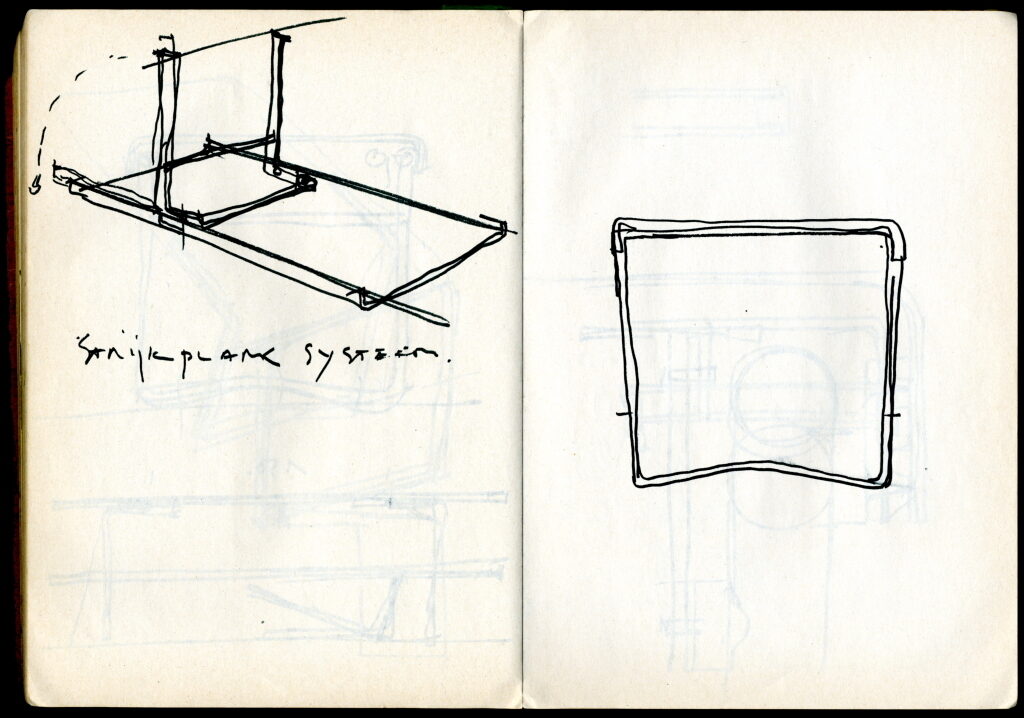 STRIJKPLANK SYSTEEM.